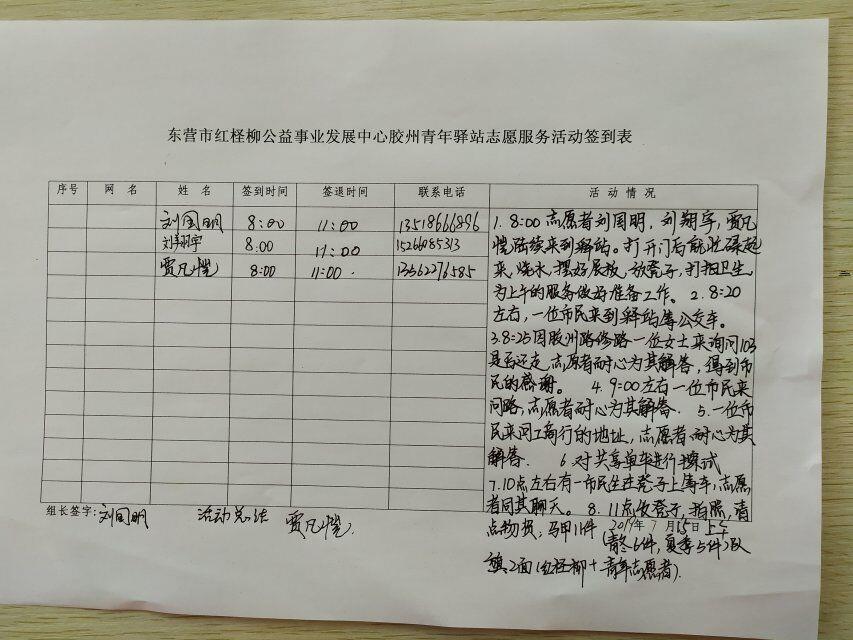 东营市红柽柳公益事业发展中心胶州青年驿站志愿服务活动签到表
序号 网 名 姓 名 签到时间 签退时间 联系电话 活 动 情 况
刘国明 8:00 11:00 13518666896
刘翔宇 8:00 11:00 15266085313
贾凡恺 8:00 11:00. 13562276585
1. 8:00 志愿者刘国明,刘翔宇,贾凡
恺陆续来到驿站。打开门后就忙碌起
来,烧水,摆好展板,放凳子,打扫卫生,
为上午的服务做好准备工作。2. 8:20
左右,一位市民来到驿站等公交车。
3.8:25因胶州路修路一位女士来询问103
是否还走,志愿者耐心为其解答,得到市
民的感谢。 4. 9:00左右一位市民来
问路,志愿者耐心为其解答. 5.一位市
民来问工商行的地址,志愿者耐心为其
解答. 6.对共享单车进行擦试
7.10点左右有一市民坐在凳子上等车,志愿
者同其聊天。 8. 11点收凳子,拍照,清
点物损,马甲11件
(青冬6件,夏季5件)队
旗2面(红柽柳+青年志愿者).
组长签字:刘国明 活动总结 贾凡恺.
2019年7月15日上午